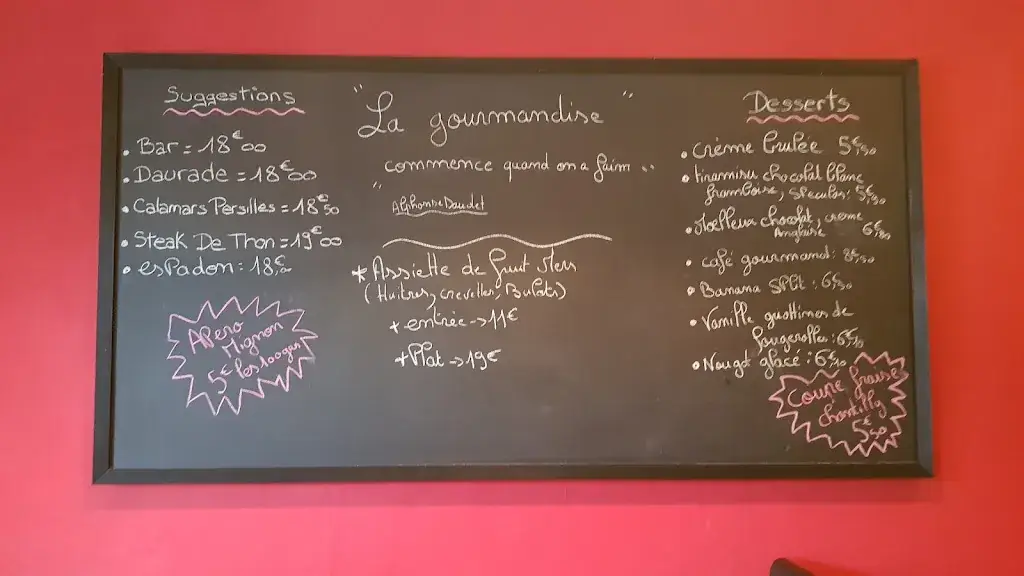 Suggestions
• Bar = 18€00
• Daurade = 18€00
• Calamars Persilles = 18€50
• Steak De Thon = 19€00
• esPadon : 18€
Apero
Mignon
5€ les 100gr!
"La gourmandise"
commence quand on a faim ..
"
Alphonse Daudet
* Assiette de fruit Mers
(Huitres, crevettes, Bulots)
+ entrée -> 11€
+ Plat -> 19€
Desserts
• crème brulée 5€,50
• tiramisu chocolat blanc
framboise, speculos : 5€,50
• Moelleux chocolat, crème
Anglaise 6€,50
• café gourmand : 8€,50
• Banana Split : 6€,50
• Vanille guottines de
fougerolles : 6€,50
• Nougat glacé : 6€,50
Coupe fraise
chantilly
5€50